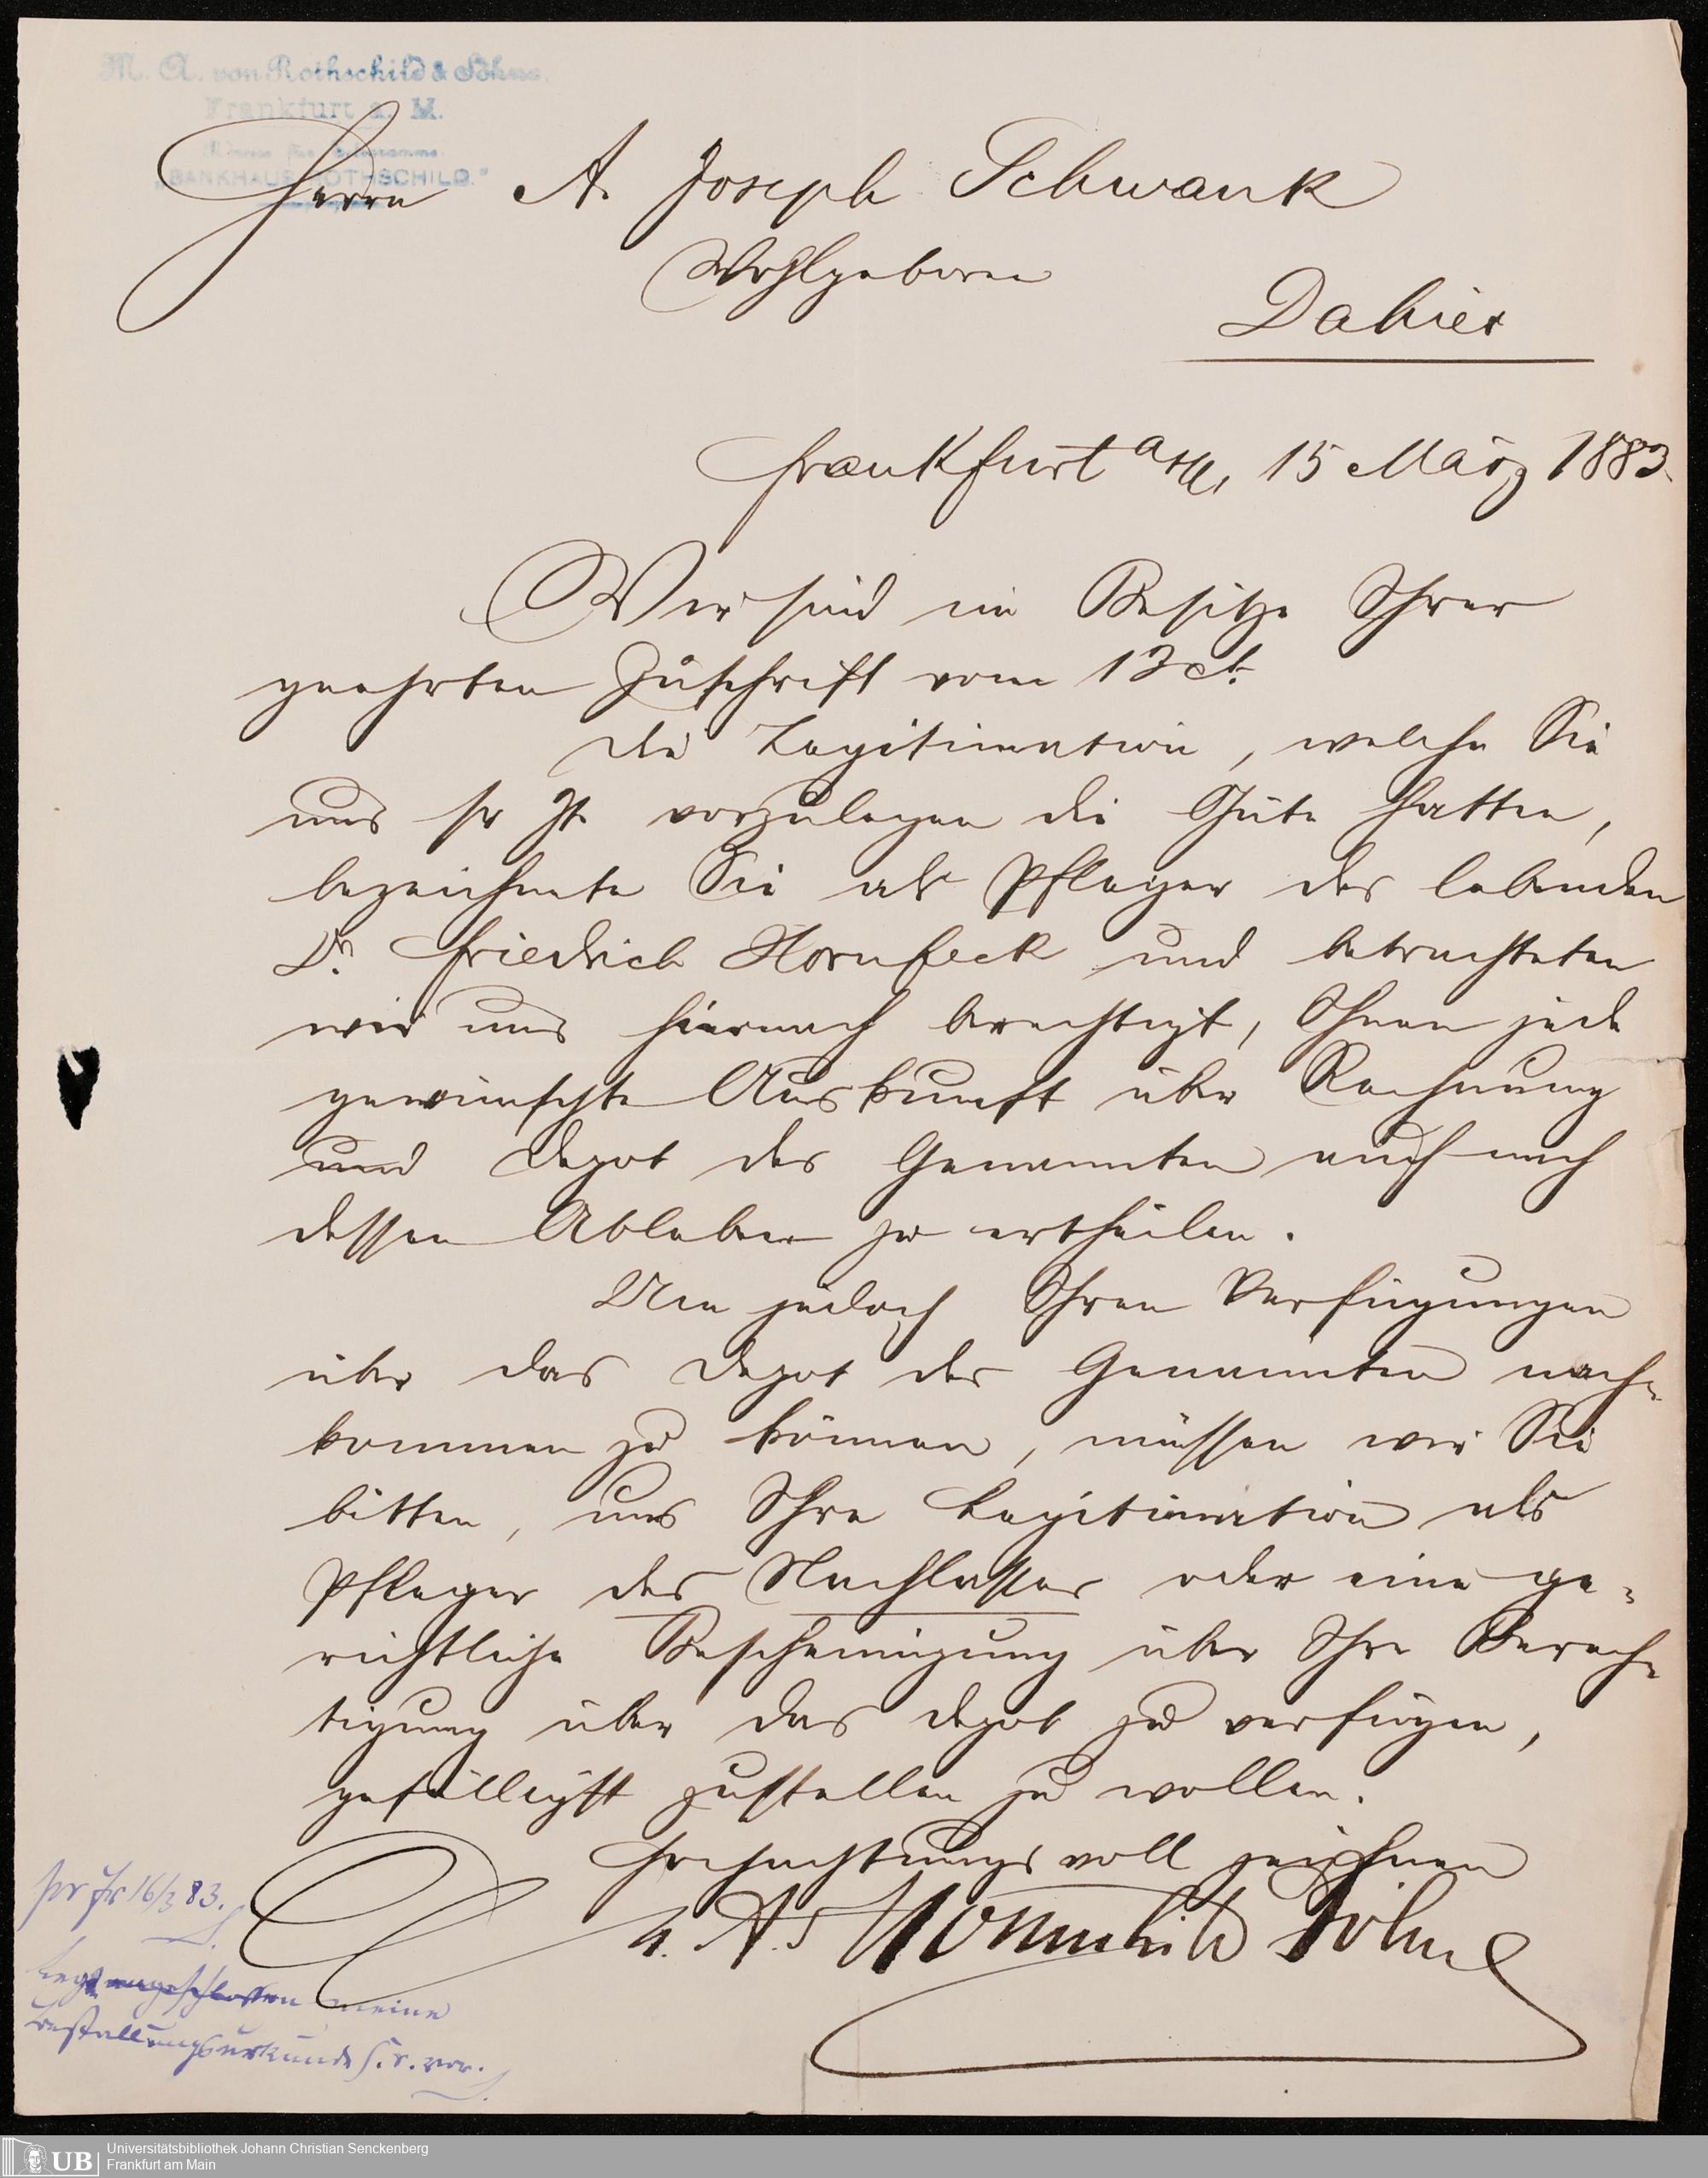 M. A. von Rothschild & Söhne.
Frankfurt a. M.
Adresse für Telegramme
"BANKHAUS ROTHSCHILD."
Herrn A. Joseph Schwank
Wohlgeboren
Dahier
Frankfurt a/M, 15 März 1883.
Wir sind im Besitze Ihrer
geehrten Zuschrift vom 13 ct.
Die Legitimation, welche Sie
uns sr Zt. vorzulegen die Güte hatten,
bezeichnete Sie als Pfleger des lebenden
Dr. Friedrich Hornfeck und betrachteten
wir uns hiernach berechtigt, Ihnen jede
gewünschte Auskunft über Rechnung
und Depot des Genannten auch nach
dessen Ableben zu ertheilen.
Um jedoch Ihren Verfügungen
über das Depot des Genannten nach-
kommen zu können, müssen wir Sie
bitten, uns Ihre Legitimation als
Pfleger des Nachlasses oder eine ge-
richtliche Bescheinigung über Ihre Berech-
tigung über das Depot zu verfügen,
gefälligst zustellen zu wollen.
Hochachtungsvoll zeichnen
M. A. v Rothschild Söhne
16/3 83.
meine
Bestallungsurkunde s. r. vor.
Universitätsbibliothek Johann Christian Senckenberg
UB Frankfurt am Main